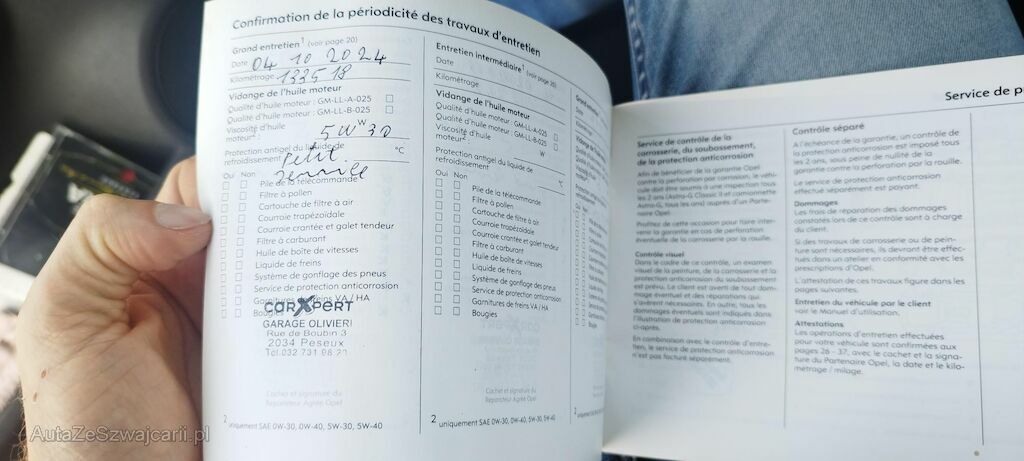 Confirmation de la périodicité des travaux d'entretien
Grand entretien¹ (voir page 20)
Date 04 10 2024
Kilométrage 133518
Vidange de l'huile moteur
Qualité d'huile moteur : GM-LL-A-025
Qualité d'huile moteur : GM-LL-B-025
Viscosité d'huile
moteur² : 5W W 30
Protection antigel du liquide de
refroidissement °C
Petit
Oui Non
Pile de la télécommande
Filtre à pollen
Cartouche de filtre à air
Courroie trapézoïdale
Courroie crantée et galet tendeur
Filtre à carburant
Huile de boîte de vitesses
Liquide de freins
Système de gonflage des pneus
Service de protection anticorrosion
Garnitures de freins VA / HA
Bougies
carXpert
GARAGE OLIVIERI
Rue de Boubin 3
2034 Peseux
Tél.032 731 98 21
Cachet et signature du
Réparateur Agréé Opel
2 uniquement SAE 0W-30, 0W-40, 5W-30, 5W-40
Entretien intermédiaire¹ (voir page 20)
Date
Kilométrage
Vidange de l'huile moteur
Qualité d'huile moteur : GM-LL-A-025
Qualité d'huile moteur : GM-LL-B-025
Viscosité d'huile
moteur² : W
Protection antigel du liquide de
refroidissement °C
Oui Non
Pile de la télécommande
Filtre à pollen
Cartouche de filtre à air
Courroie trapézoïdale
Courroie crantée et galet tendeur
Filtre à carburant
Huile de boîte de vitesses
Liquide de freins
Système de gonflage des pneus
Service de protection anticorrosion
Garnitures de freins VA / HA
Bougies
Cachet et signature du
Réparateur Agréé Opel
2 uniquement SAE 0W-30, 0W-40, 5W-30, 5W-40
Service de p
Service de contrôle de la
carrosserie, du soubassement,
de la protection anticorrosion
Afin de bénéficier de la garantie Opel
contre la perforation par corrosion, le véhi-
cule doit être soumis à une inspection tous
les 2 ans (Astra-G Classic II et camionnette
Astra-G, tous les ans) auprès d'un Parte-
naire Opel.
Profitez de cette occasion pour faire inter-
venir la garantie en cas de perforation
éventuelle de la carrosserie par la rouille.
Contrôle visuel
Dans le cadre de ce contrôle, un examen
visuel de la peinture, de la carrosserie et la
protection anticorrosion du soubassement
est prévu. Le client est averti de tout dom-
mage éventuel et des réparations qui
s'avèrent nécessaires. En outre, tous les
dommages éventuels sont indiqués dans
l'illustration de protection anticorrosion
ci-après.
En combinaison avec le contrôle d'entre-
tien, le service de protection anticorrosion
n'est pas facturé séparément.
Contrôle séparé
A l'échéance de la garantie, un contrôle de
la protection anticorrosion est imposé tous
les 2 ans, sous peine de nullité de la
garantie contre la perforation par la rouille.
Le service de protection anticorrosion
effectué séparément est payant.
Dommages
Les frais de réparation des dommages
constatés lors de ce contrôle sont à charge
du client.
Si des travaux de carrosserie ou de pein-
ture sont nécessaires, ils devront être effec-
tués dans un atelier en conformité avec les
prescriptions d'Opel.
L'attestation de ces travaux figure dans les
pages suivantes.
Entretien du véhicule par le client
voir le Manuel d'utilisation.
Attestations
Les opérations d'entretien effectuées
pour votre véhicule sont confirmées aux
pages 26 - 37, avec le cachet et la signa-
ture du Partenaire Opel, la date et le kilo-
métrage / milage.
AutaZeSzwajcarii.pl